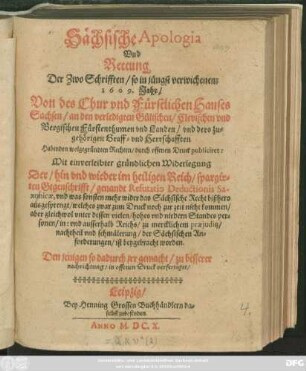 Sächsische Apologia
Vnd
Rettung
Der Zwo Schrifften / so in jüngst verwichenem
1609. Jahr /
Von des Chur vnd Fürstlichen Hauses
Sachsen / an den verledigten Gülischen / Clevischen vnd
Bergischen Fürstenthumen vnd Landen / vnd dero zuge-
hörigen Graff- vnd Herrschafften
Habenden wolgegründten Rechten / durch offenen Druck publiciret:
Mit einverleibter gründlichen Widerlegung
Der / hin vnd wieder im heiligen Reich / spargir-
ten Gegenschrifft / genandt Refutatio Deductionis Sa-
xonicæ, vnd was sonsten mehr wider das Sächsische Recht bißhero
außgesprengt / welches zwar zum Druck noch zur zeit nicht kommen /
aber gleichwol unter dessen vielen / hohes vnd niedern Standes per-
sonen / in: vnd ausserhalb Reichs / zu mercklichem præjudiz /
nachtheil vnd schmälerung / der Sächsischen An-
forderungen / ist beygebracht worden.
Den jenigen so dadurch irr gemacht / zu besserer
nachrichtung / in offenen Druck verfertiget /
Leipzig /
Bey Henning Grossen Buchhändlern da-
selbst zubefinden.
ANNO M. DC. X.